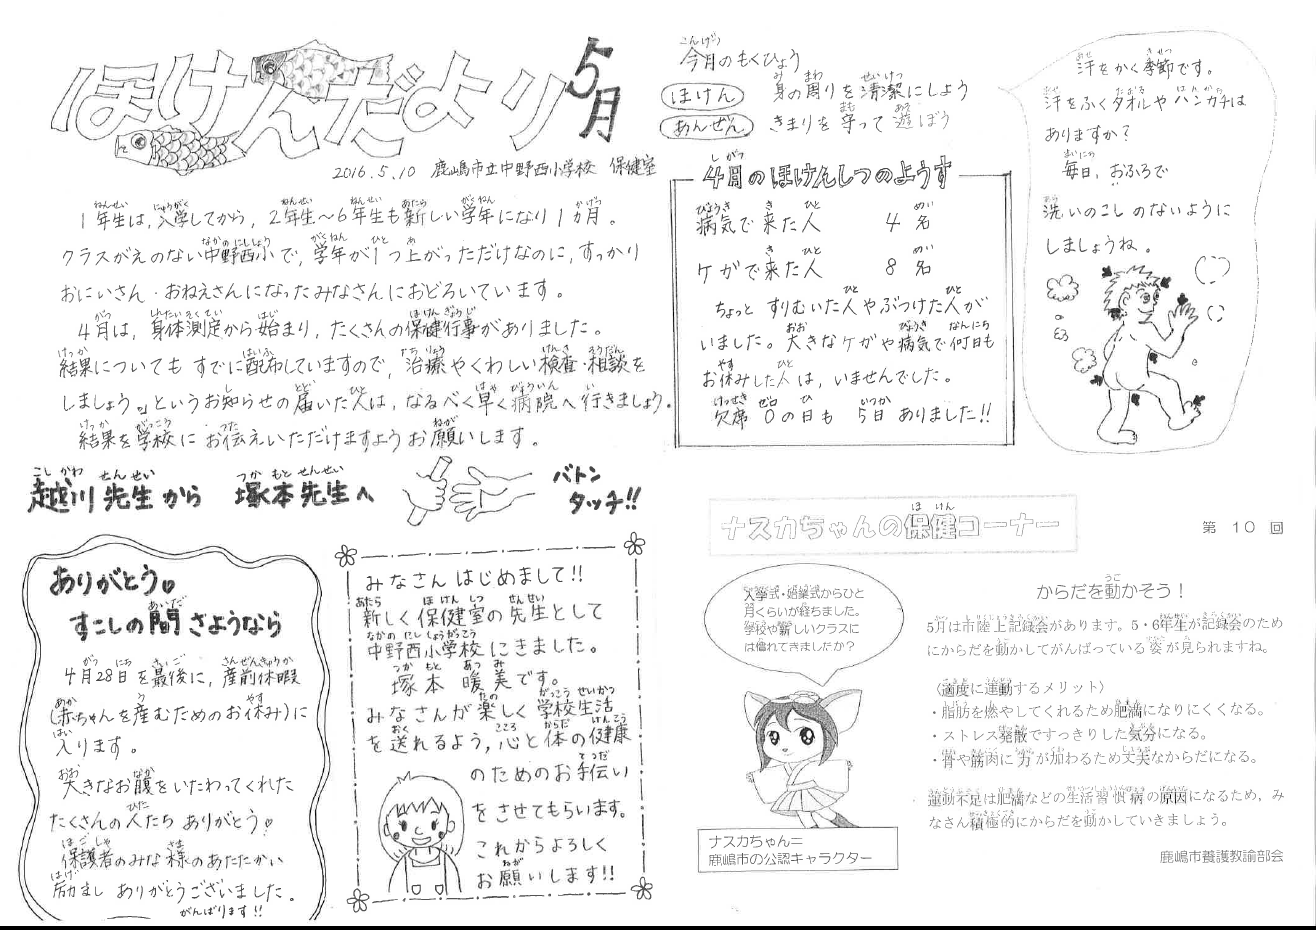 ほけんだより 5月
2016.5.10 鹿嶋市立中野西小学校 保健室
1年生は、入学してから、2年生〜6年生も新しい学年になり1カ月。
クラスがえのない中野西小で、学年が1つ上がっただけなのに、すっかり
おにいさん・おねえさんになったみなさんにおどろいています。
4月は、身体測定から始まり、たくさんの保健行事がありました。
結果についても すでに配布していますので、治療やくわしい検査・相談を
しましょう。というお知らせの届いた人は、なるべく早く病院へ行きましょう。
結果を学校に お伝えいただけますようお願いします。
越川先生から 塚本先生へ
バトン
タッチ!!
ありがとう。
すこしの間 さようなら
4月28日を最後に、産前休暇
(赤ちゃんを産むためのお休み)に
入ります。
大きなお腹をいたわってくれた
たくさんの人たち ありがとう。
保護者のみな様のあたたかい
励まし ありがとうございました。
がんばります!!
みなさん はじめまして!!
新しく保健室の先生として
中野西小学校にきました。
塚本 暖美です。
みなさんが楽しく学校生活
を送れるよう、心と体の健康
のためのお手伝い
をさせてもらいます。
これからよろしく
お願いします!!
今月のもくひょう
ほけん 身の周りを清潔にしよう
あんぜん きまりを守って遊ぼう
4月のほけんしつのようす
病気で来た人 4名
ケガで来た人 8名
ちょっと すりむいた人やぶつけた人が
いました。大きなケガや病気で何日も
お休みした人は、いませんでした。
欠席0の日も 5日 ありました!!
汗をかく季節です。
汗をふくタオルやハンカチは
ありますか?
毎日、おふろで
洗いのこしのないように
しましょうね。
ナスカちゃんの保健コーナー
第 10 回
入学式・始業式からひと
月くらいが経ちました。
学校や新しいクラスに
は慣れてきましたか?
ナスカちゃん=
鹿嶋市の公認キャラクター
からだを動かそう!
5月は市陸上記録会があります。5・6年生が記録会のため
にからだを動かしてがんばっている姿が見られますね。
〈適度に運動するメリット〉
・脂肪を燃やしてくれるため肥満になりにくくなる。
・ストレス発散ですっきりした気分になる。
・骨や筋肉に力が加わるため丈夫なからだになる。
運動不足は肥満などの生活習慣病の原因になるため、み
なさん積極的にからだを動かしていきましょう。
鹿嶋市養護教諭部会